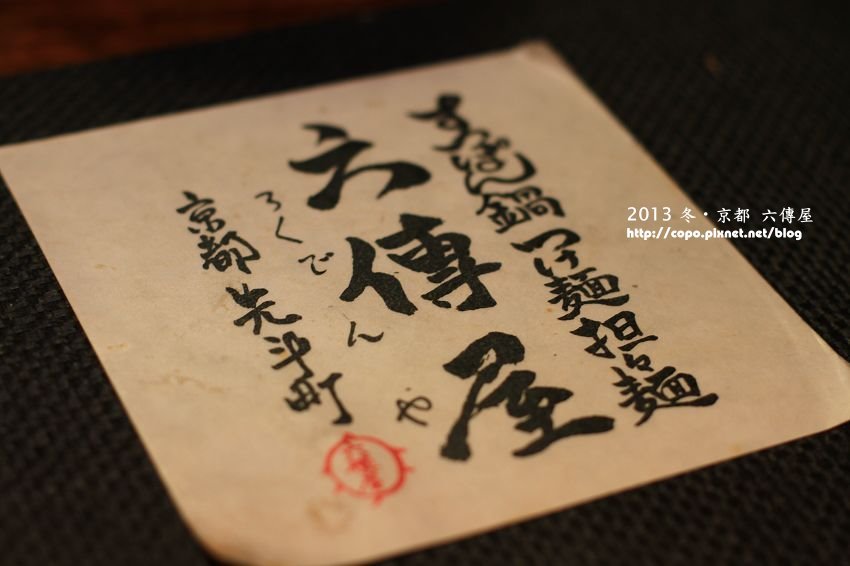 すっぽん鍋つけ麺担々麺
六傳屋
ろくでんや
京都先斗町
2013 冬・京都 六傳屋
http://copo.pixnet.net/blog